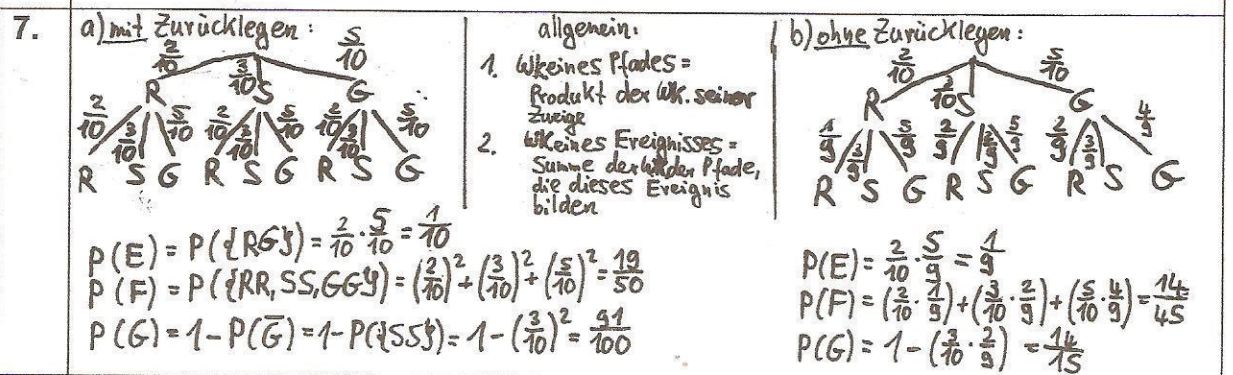 7.
a) mit Zurücklegen:
2/10 3/10 5/10
R S G
2/10 3/10 5/10 2/10 3/10 5/10 2/10 3/10 5/10
R S G R S G R S G
P(E) = P({RG}) = 2/10 · 5/10 = 1/10
P(F) = P({RR, SS, GG}) = (2/10)² + (3/10)² + (5/10)² = 19/50
P(G) = 1 - P(G̅) = 1 - P({SS}) = 1 - (3/10)² = 91/100
allgemein:
1. Wk eines Pfades =
Produkt der Wk. seiner
Zweige
2. Wk eines Ereignisses =
Summe der Wk der Pfade,
die dieses Ereignis
bilden
b) ohne Zurücklegen:
2/10 3/10 5/10
R S G
1/9 3/9 5/9 2/9 2/9 5/9 2/9 3/9 4/9
R S G R S G R S G
P(E) = 2/10 · 5/9 = 1/9
P(F) = (2/10 · 1/9) + (3/10 · 2/9) + (5/10 · 4/9) = 14/45
P(G) = 1 - (3/10 · 2/9) = 14/15